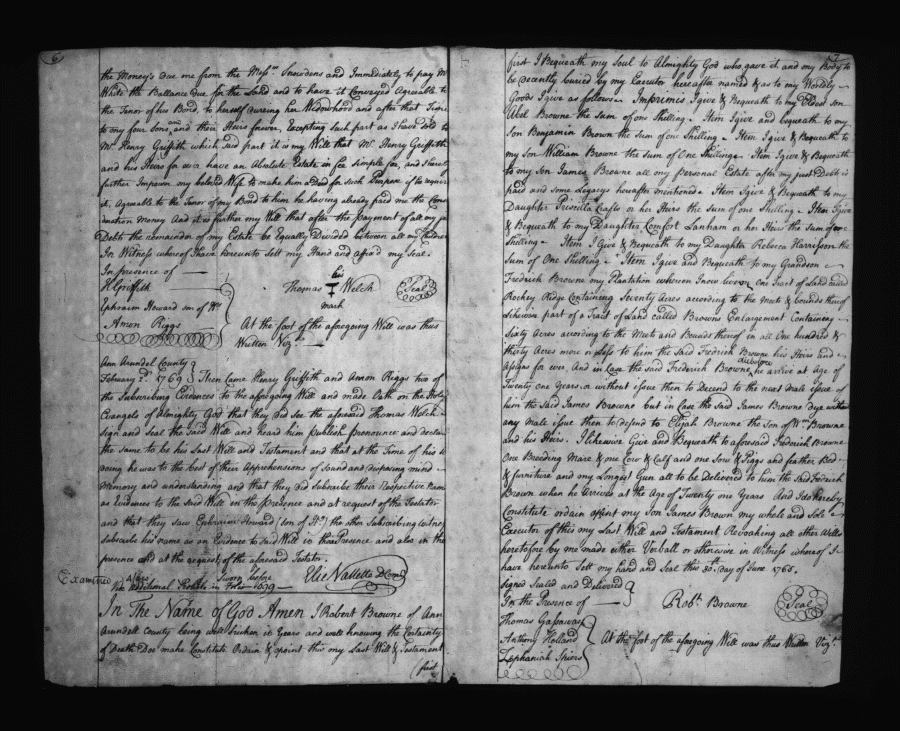 6
the Money's due me from the Messrs. Snowdens and Immediately to pay Mr
White the Ballance due for the Land and to have it Conveyed Agreable to
the Tenor of his Bond, to herself during her Widowhood and after that
to my four Sons and their Heirs forever, Excepting such part as I have sold to
Mr. Henry Griffith which said part it is my Will that Mr. Henry Griffith
and his Heirs for ever have an Absolute Estate in fee simple in, and I hereby
further Impower my beloved Wife to make him a Deed for such Purpose if he require
it, Agreable to the Tenor of my Bond to him he having already paid me the Consi
deration Money And it is further my Will that after the payment of all my just
Debts the remainder of my Estate be Equally Divided between all my Children
In Witness whereof I have hereunto sett my Hand and affix'd my Seal
In presence of
H Griffith
Ephraim Howard son of Hy
Amon Riggs
his
Thomas T Welch
mark
Seal
At the foot of the aforegoing Will was thus
Written Vizt.
Ann Arundel County
February 2d. 1769 Then Came Henry Griffith and Amon Riggs two of
the Subscribing Evidences to the aforegoing Will and made Oath on the Holy
Evangels of Almighty God that they did see the aforesaid Thomas Welch
sign and Seal the said Will and heard him publish pronounce and declare
the same to be his Last Will and Testament and that at the Time of his so
doing he was to the best of their Apprehensions of Sound and disposing mind
Memory and understanding and that they did Subscribe their Respective Names
as Evidences to the said Will in the presence and at request of the Testator
and that they saw Ephraim Howard (son of Hy) the other Subscribing Witness
Subscribe his name as an Evidence to said Will in their Presence and also in the
presence and at the request of the aforesaid Testator.
Examined
Sworn before
Elie Vallette D Comy
Vide Additional Probate in Folio 1699
In The Name of God Amen I Robert Browne of Ann
Arundell County being well Stricken in Years and well knowing the Certainty
of Death Doe make Constitute Ordain & appoint this my Last Will & Testament
first
7
first I Bequeath my Soul to Almighty God who gave it and my Body to
be decently buried by my Executor hereafter named & as to my Worldly
Goods I give as follows. Imprimis I give & Bequeath to my Eldest Son
Abel Browne the Sum of one Shilling. Item I give and bequeath to my
Son Benjamin Brown the Sum of one Shilling. Item I give & Bequeath to
my Son William Browne the Sum of One Shilling. Item I give & Bequeath
to my Son James Browne all my Personal Estate after my just Debts is
paid and some Legacys hereafter mentioned. Item I give & Bequeath to my
Daughter Priscilla Crafts or her Heirs the sum of one Shilling. Item I give
& Bequeath to my Daughter Comfort Lanham or her Heirs the Sum of one
Shilling. Item I Give & Bequeath to my Daughter Rebeca Harrisson the
Sum of One Shilling. Item I give and Bequeath to my Grandson
Fredrick Browne my Plantation whereon I now live on One Tract of Land called
Rockey Ridge Containing Seventy Acres according to the Meets & Bounds thereof
Likewise part of a Tract of Land called Browns Enlargement Containing
Sixty Acres according to the Meets and Bounds thereof in all One hundred &
thirty Acres more or Less to him the said Fredrick Browne his Heirs and
Assigns for ever. And in Case the said Frederick Browne die before he arrive at Age of
Twenty one Years, or without issue then to Decend to the next Male issue of
him the said James Browne but in Case the said James Browne dye without
any Male issue then to defend to Elijah Browne the Son of Wm Browne
and his Heirs. I likewise Give and Bequeath to aforesaid Frederick Browne
One Breeding Mare & one Cow & Calf and one Sow & Piggs and feather Bed
& furniture and my Longest Gun all to be Delivered to him the said Fredrick
Brown when he arrives at the Age of Twenty one Years And I do hereby
Constitute ordain appoint my Son James Brown my whole and Sole
Executor of this my Last Will and Testament Revoaking all other Wills
heretofore by me made either Verball or otherwise in Witness whereof I
have hereunto Sett my hand and Seal this 30th. day of June 1765.
Signed Sealed and Delivered
In the Presence of
Thomas Gassaway
Anthony Holland
Zephaniah Spiers
Robt. Browne
Seal
At the foot of the aforegoing Will was thus Written Vizt.